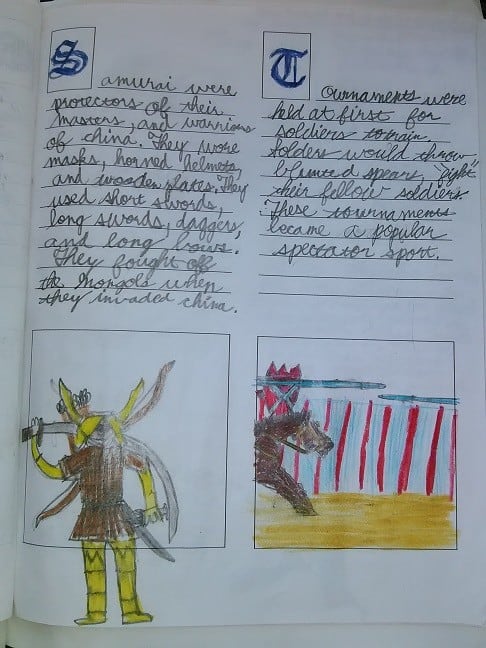 Samurai were
protectors of their
masters, and warriors
of china. They wore
masks, horned helmets,
and wooden plates. They
used short swords,
long swords, daggers,
and long bows.
They fought off
the Mongols when
they invaded china.
Tournaments were
held at first for
soldiers to train.
Solders would throw
blunted spears, "fight"
their fellow soldiers.
These tournaments
became a popular
spectator sport.